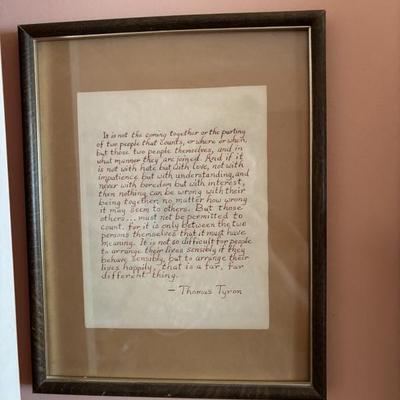 It is not the coming together or the parting
of two people that counts, or where or when,
but those two people themselves, and in
what manner they are joined. And if it
is not with hate but with love, not with
impatience but with understanding, and
never with boredom but with interest,
then nothing can be wrong with their
being together, no matter how wrong
it may seem to others. But those
others... must not be permitted to
count. for it is only between the two
persons themselves that it must have
meaning. It is not so difficult for people
to arrange their lives sensibly if they
behave sensibly, but to arrange their
lives happily, that is a far, far
different thing.
— Thomas Tyron